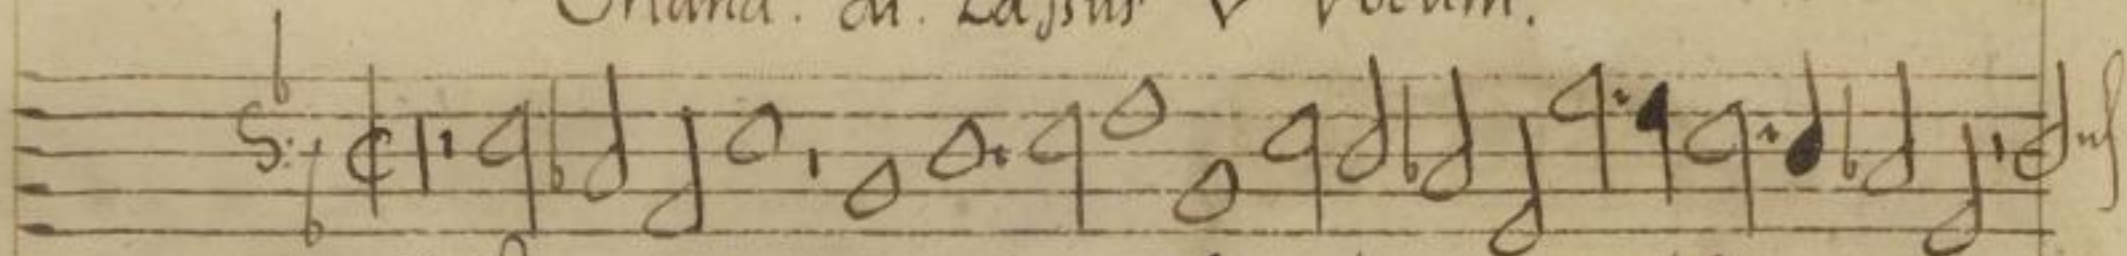 Orland. di. Lassus V Vocum.